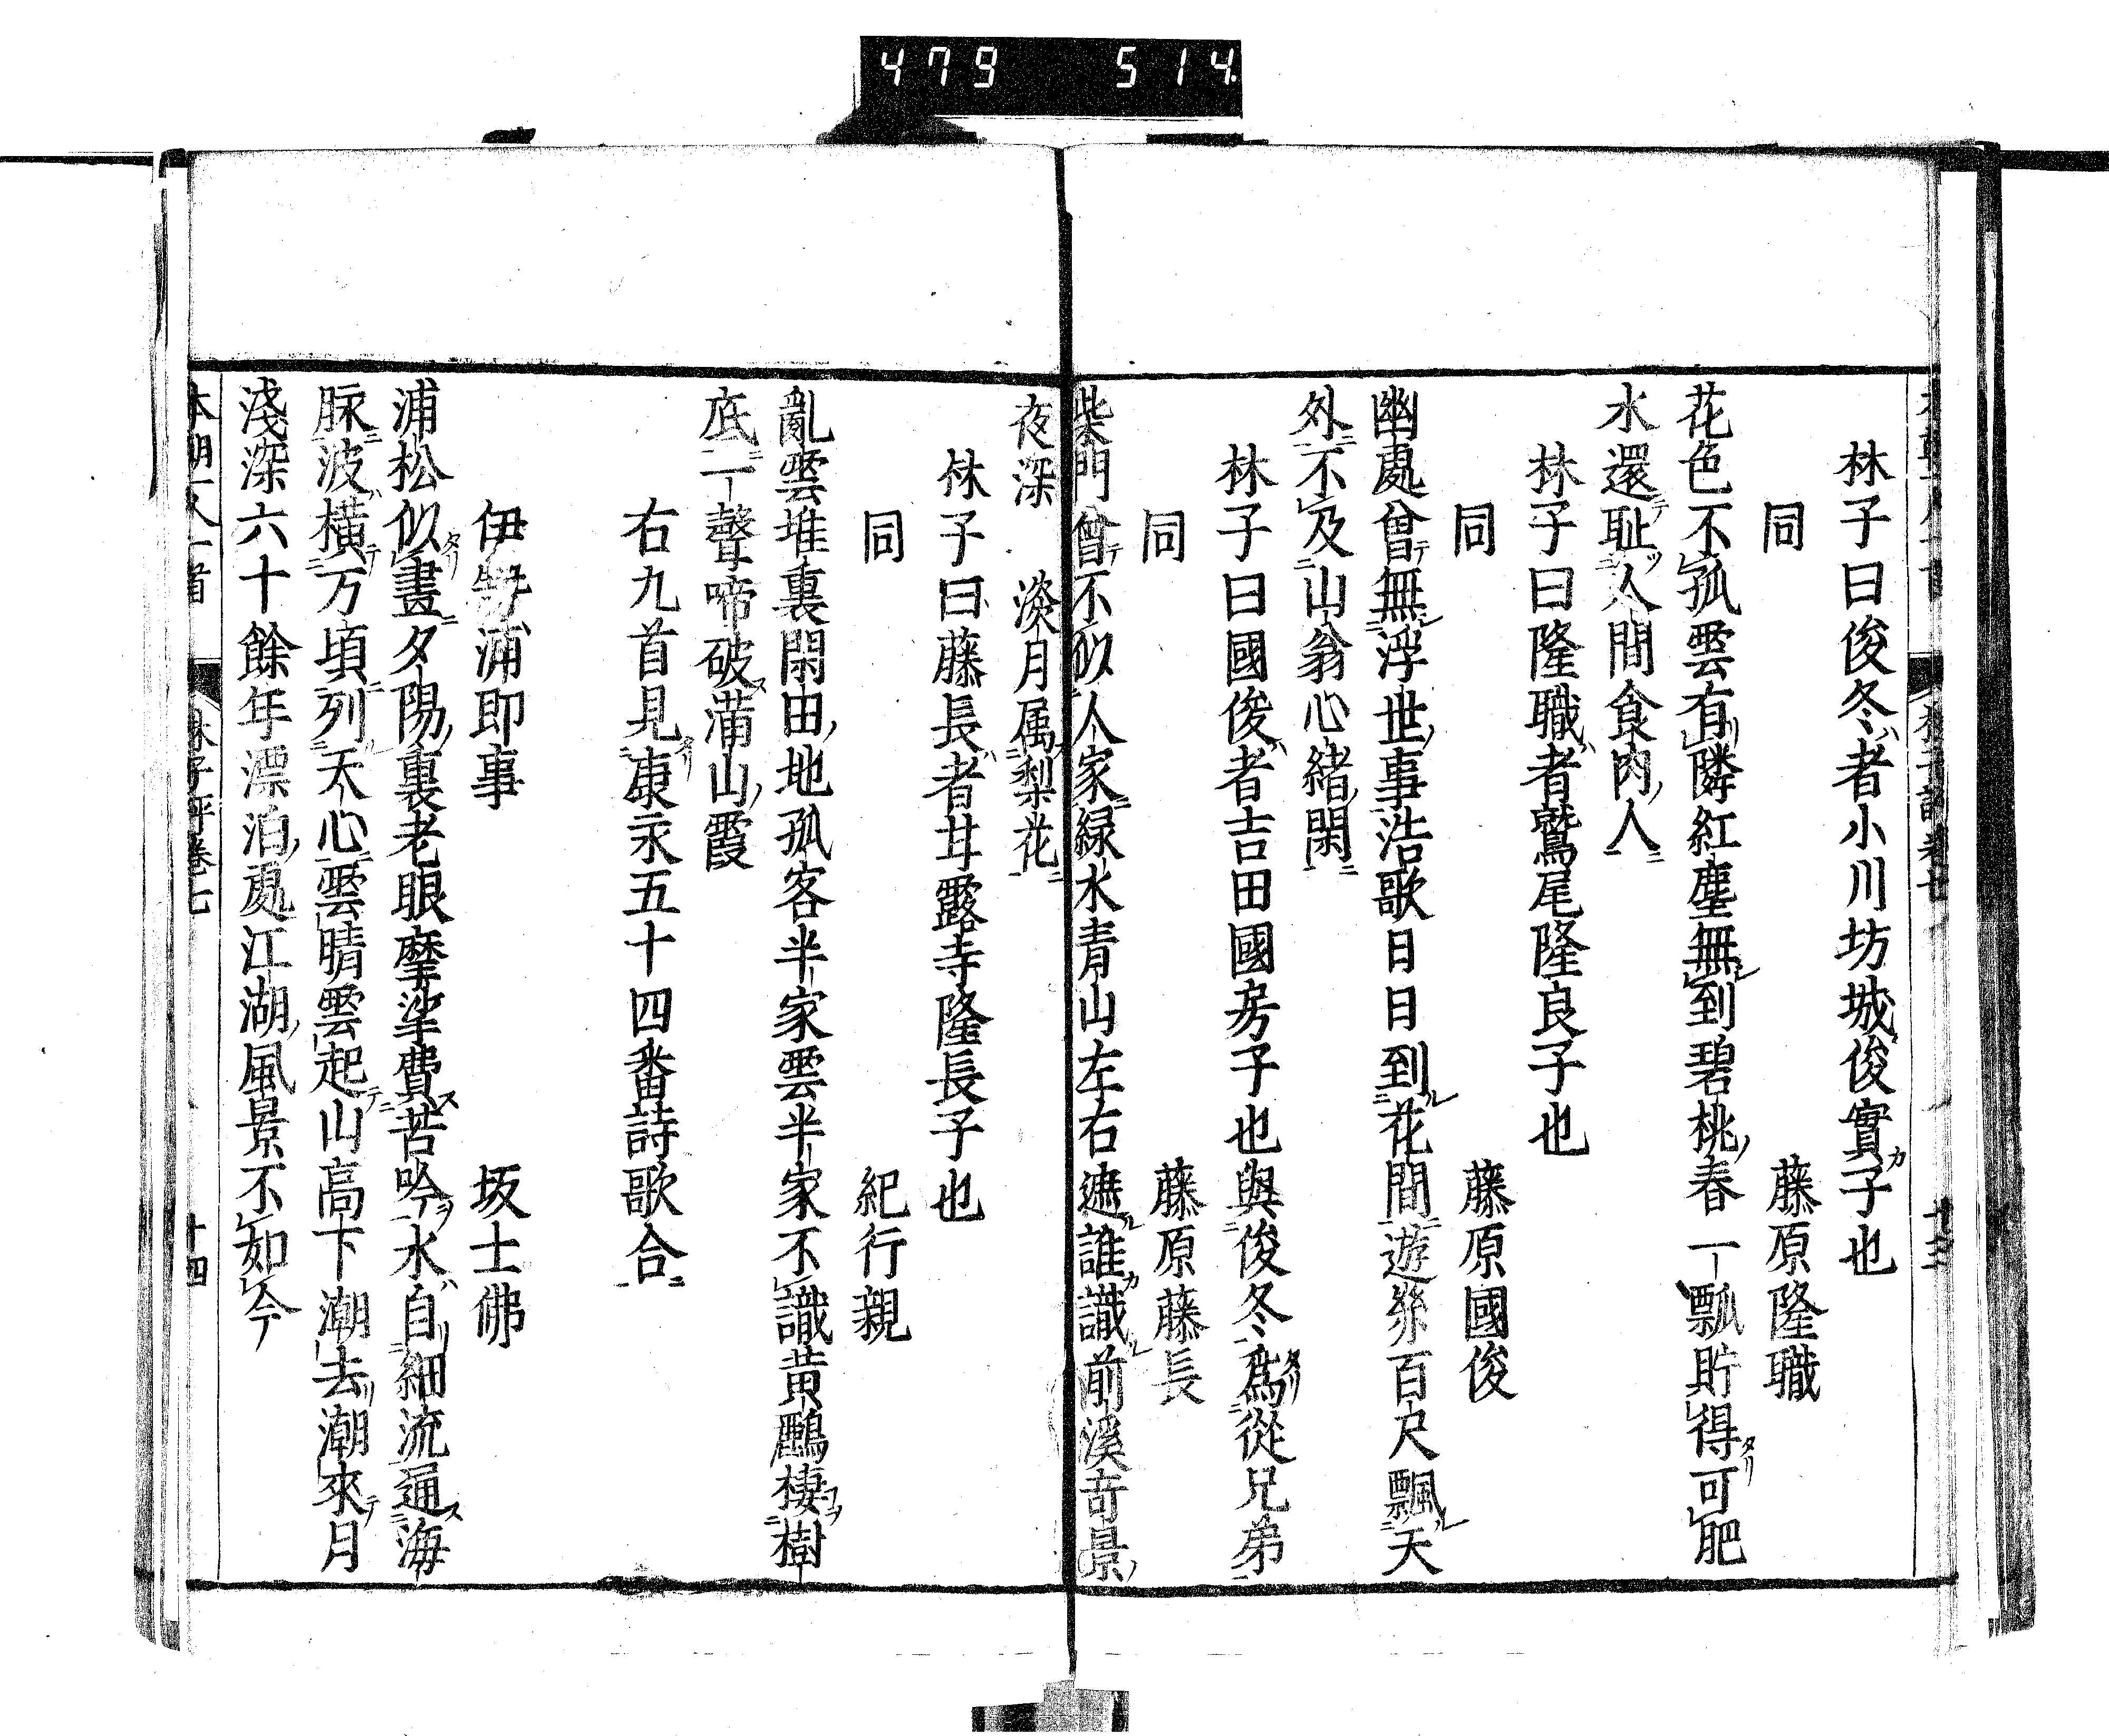 479 514
林子曰俊冬者小川坊城俊實子也
同 藤原隆職
花色不孤雲有隣紅塵無到碧桃春一瓢貯得可肥
水還耻人間食肉人
林子曰隆職者鷲尾隆良子也
同 藤原國俊
幽處曾無浮世事浩歌日日到花間遊絲百尺飄天
外不及山翁心緒閑
林子曰國俊者吉田國房子也與俊冬爲從兄弟
同 藤原藤長
柴門曾不似人家緑水青山左右遮誰識前溪奇景
夜深 淡月属梨花
林子曰藤長者甘露寺隆長子也
同 紀行親
亂雲堆裏閑田地孤客半家雲半家不識黄鸝棲樹
底一聲啼破滿山霞
右九首見康永五十四番詩歌合
伊勢浦即事 坂士佛
浦松似畫夕陽裏老眼摩挲費苦吟水自細流通海
脉波横万頃列天心雲晴雲起山高下潮去潮來月
淺深六十餘年漂泊處江湖風景不如今
本朝一人一首 林子評卷七 十四